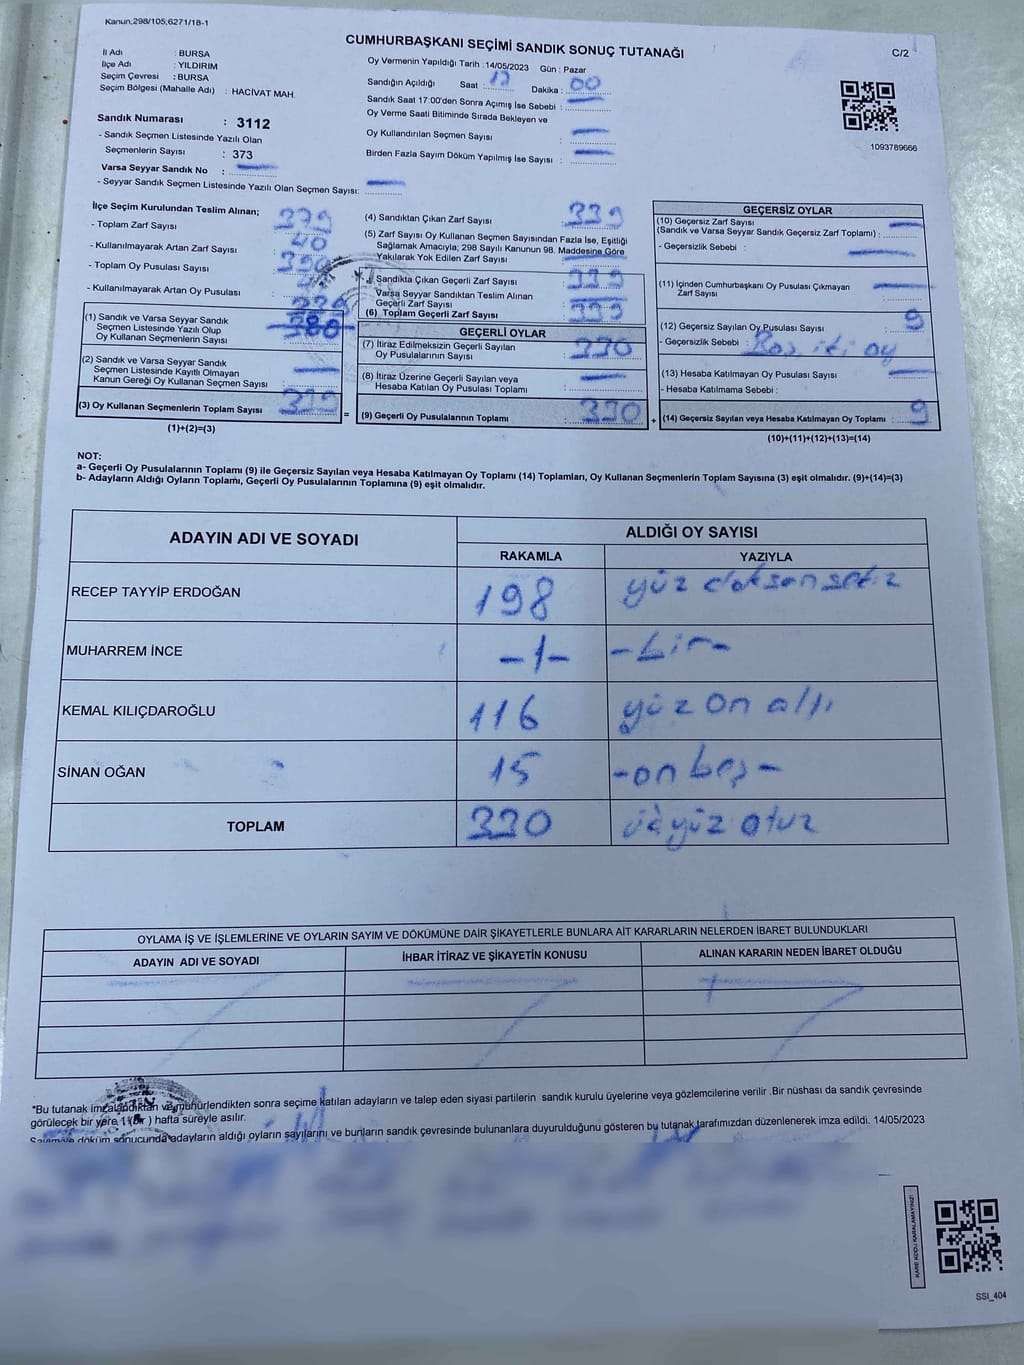 Kanun,298/105,6271/18-1
CUMHURBAŞKANI SEÇİMİ SANDIK SONUÇ TUTANAĞI
C/2
İl Adı : BURSA
İlçe Adı : YILDIRIM
Seçim Çevresi : BURSA
Seçim Bölgesi (Mahalle Adı) : HACİVAT MAH.
Sandık Numarası : 3112
- Sandık Seçmen Listesinde Yazılı Olan
Seçmenlerin Sayısı : 373
Varsa Seyyar Sandık No :
- Seyyar Sandık Seçmen Listesinde Yazılı Olan Seçmen Sayısı:
Oy Vermenin Yapıldığı Tarih :14/05/2023 Gün : Pazar
Sandığın Açıldığı Saat : 17 Dakika : 00
Sandık Saat 17:00'den Sonra Açımış İse Sebebi :
Oy Verme Saati Bitiminde Sırada Bekleyen ve
Oy Kullandırılan Seçmen Sayısı :
Birden Fazla Sayım Döküm Yapılmış İse Sayısı :
1093789666
İlçe Seçim Kurulundan Teslim Alınan;
- Toplam Zarf Sayısı : 379
- Kullanılmayarak Artan Zarf Sayısı : 40
- Toplam Oy Pusulası Sayısı :
- Kullanılmayarak Artan Oy Pusulası :
(1) Sandık ve Varsa Seyyar Sandık
Seçmen Listesinde Yazılı Olup
Oy Kullanan Seçmenlerin Sayısı
(2) Sandık ve Varsa Seyyar Sandık
Seçmen Listesinde Kayıtlı Olmayan
Kanun Gereği Oy Kullanan Seçmen Sayısı :
(3) Oy Kullanan Seçmenlerin Toplam Sayısı : 339
(1)+(2)=(3)
(4) Sandıktan Çıkan Zarf Sayısı : 339
(5) Zarf Sayısı Oy Kullanan Seçmen Sayısından Fazla İse, Eşitliği
Sağlamak Amacıyla; 298 Sayılı Kanunun 98. Maddesine Göre
Yakılarak Yok Edilen Zarf Sayısı :
Sandıkta Çıkan Geçerli Zarf Sayısı : 339
Varsa Seyyar Sandıktan Teslim Alınan
Geçerli Zarf Sayısı :
(6) Toplam Geçerli Zarf Sayısı : 339
GEÇERLİ OYLAR
(7) İtiraz Edilmeksizin Geçerli Sayılan
Oy Pusulalarının Sayısı : 330
(8) İtiraz Üzerine Geçerli Sayılan veya
Hesaba Katılan Oy Pusulası Toplamı :
= (9) Geçerli Oy Pusulalarının Toplamı : 330
GEÇERSİZ OYLAR
(10) Geçersiz Zarf Sayısı
(Sandık ve Varsa Seyyar Sandık Geçersiz Zarf Toplamı) :
- Geçersizlik Sebebi :
(11) İçinden Cumhurbaşkanı Oy Pusulası Çıkmayan
Zarf Sayısı :
(12) Geçersiz Sayılan Oy Pusulası Sayısı : 9
- Geçersizlik Sebebi :
(13) Hesaba Katılmayan Oy Pusulası Sayısı :
- Hesaba Katılmama Sebebi :
+ (14) Geçersiz Sayılan veya Hesaba Katılmayan Oy Toplamı : 9
(10)+(11)+(12)+(13)=(14)
NOT:
a- Geçerli Oy Pusulalarının Toplamı (9) ile Geçersiz Sayılan veya Hesaba Katılmayan Oy Toplamı (14) Toplamları, Oy Kullanan Seçmenlerin Toplam Sayısına (3) eşit olmalıdır. (9)+(14)=(3)
b- Adayların Aldığı Oyların Toplamı, Geçerli Oy Pusulalarının Toplamına (9) eşit olmalıdır.
ADAYIN ADI VE SOYADI
ALDIĞI OY SAYISI
RAKAMLA YAZIYLA
RECEP TAYYİP ERDOĞAN 198 yüz doksan sekiz
MUHARREM İNCE -1- -bir-
KEMAL KILIÇDAROĞLU 116 yüz on altı
SİNAN OĞAN 15 -on beş-
TOPLAM 330 üçyüz otuz
OYLAMA İŞ VE İŞLEMLERİNE VE OYLARIN SAYIM VE DÖKÜMÜNE DAİR ŞİKAYETLERLE BUNLARA AİT KARARLARIN NELERDEN İBARET BULUNDUKLARI
ADAYIN ADI VE SOYADI İHBAR İTİRAZ VE ŞİKAYETİN KONUSU ALINAN KARARIN NEDEN İBARET OLDUĞU
*Bu tutanak imzalandıktan ve mühürlendikten sonra seçime katılan adayların ve talep eden siyasi partilerin sandık kurulu üyelerine veya gözlemcilerine verilir .Bir nüshası da sandık çevresinde
görülecek bir yere 1 (Bir ) hafta süreyle asılır.
Sayım ve döküm sonucunda adayların aldığı oyların sayılarını ve bunların sandık çevresinde bulunanlara duyurulduğunu gösteren bu tutanak tarafımızdan düzenlenerek imza edildi. 14/05/2023
KARE KODU KARALAMAYINIZ!
SSI_404